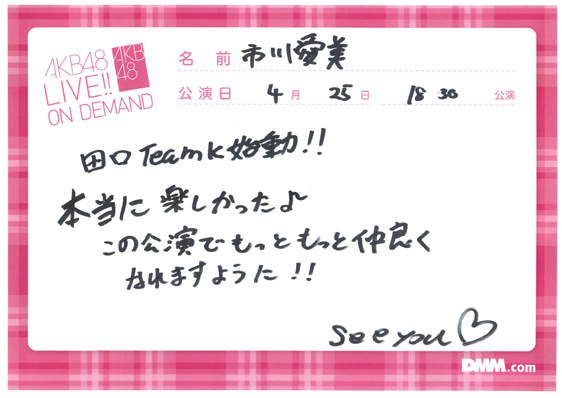 AKB48
LIVE!!
ON DEMAND
AKB
48
名前 市川愛美
公演日 4月 25日 18 30 公演
田口 Team K 始動!!
本当に 楽しかった♪
この公演でもっともっと仲良く
なれますように!!
see you♡
DMM.com